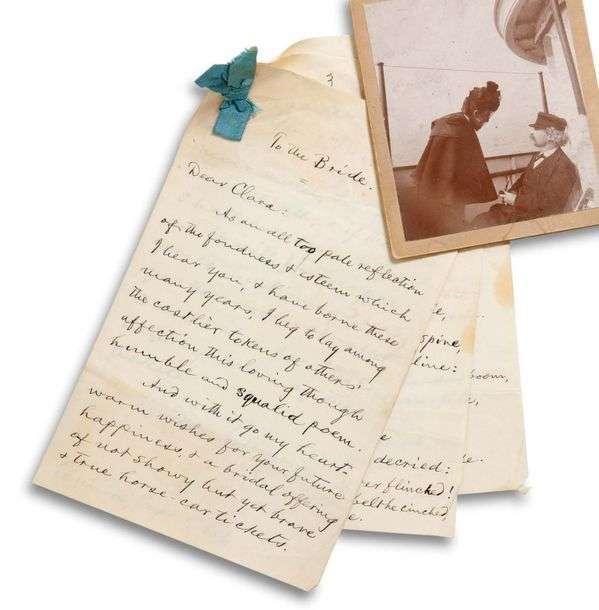 To the Bride.
Dear Clara:
As an all too pale reflection
of the fondness & esteem which
I bear you, & have borne these
many years, I beg to lay among
the costlier tokens of others'
affection this loving though
humble and squalid poem.
And with it go my heart-
warm wishes for your future
happiness, & a bridal offering
of not showy but yet brave
& true horse-car tickets.
3
spine,
line:
boom,
decried:
flinched!
belt he cinched,